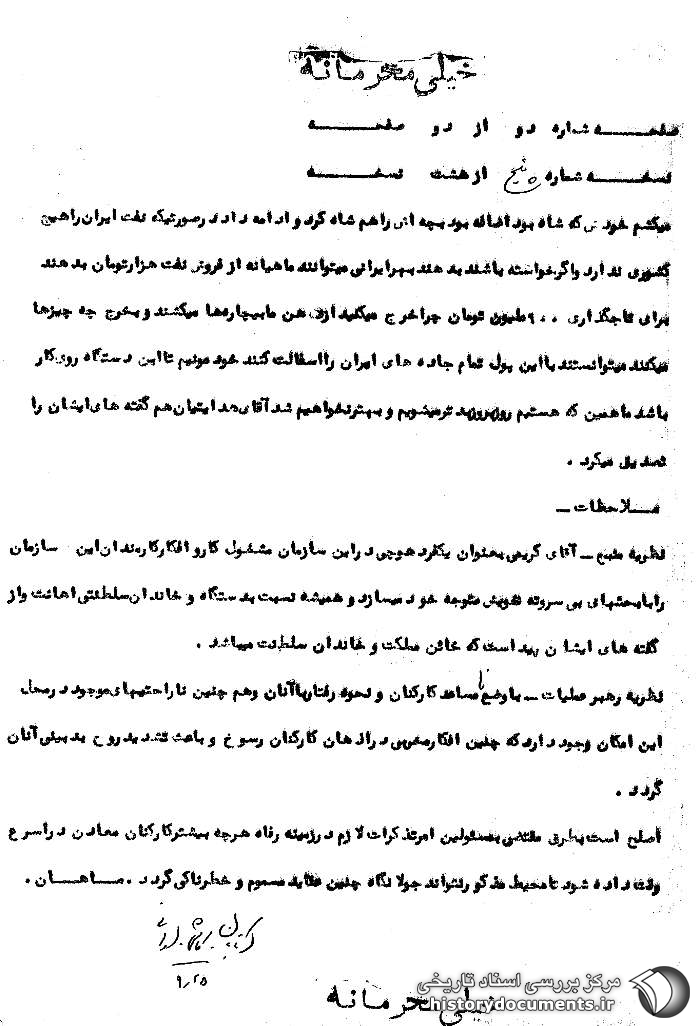 خیلی محرمانه
صفحه شماره دو از دو صفحه
نسخه شماره پنج از هشت نسخه
میکشم خودش که شاه بود اضافه بود بچه اش را هم شاه کرد و ادامه داد در صورتیکه نفت ایران را هیچ
کشوری ندارد و اگر خواسته باشند بدهند بهر ایرانی میتوانند ماهیانه از فروش نفت هزار تومان بدهند
برای تاجگذاری ۹۰۰ ملیون تومان چرا خرج میکنید از من ما بیچاره‌ها میکشند و بخرج چه چیزها
میکنند میتوانستند با این پول تمام جاده های ایران را اسفالت کنند خودمونیم تا این دستگاه روی کار
باشد ما همین که هستیم روز بروز بدتر میشویم و بهتر نخواهیم شد آقای هدایتیان هم گفته های ایشان را
تصدیق میکرد .
ملاحظات –
نظریه منبع – آقای کریمی بعنوان یکفرد هوچی در این سازمان مشغول کار و افکار کارمندان این سازمان
را با بحثهای بی سروته خویش متوجه خود میسازد و همیشه نسبت بدستگاه و خاندان سلطنتی اهانت و از
گفته های ایشان پیداست که خائن مملکت و خاندان سلطنت میباشد .
نظریه رهبر عملیات – با وضع نامساعد کارکنان و نحوه رفتار با آنان و هم چنین ناراحتیهای موجود در محل
این امکان وجود دارد که چنین افکار مخربی در اذهان کارکنان رسوخ و باعث تشدید روح بدبینی آنان
گردد .
اصلح است بطریق مقتضی بمسئولین امر تذکرات لازم در زمینه رفاه هرچه بیشتر کارکنان معادن در اسرع
وقت داده شود تا محیط مذکور نتواند جولانگاه چنین عقاید مسموم و خطرناکی گردد . ماهان .
۹/۲۵
خیلی محرمانه
مرکز بررسی اسناد تاریخی
historydocuments.ir